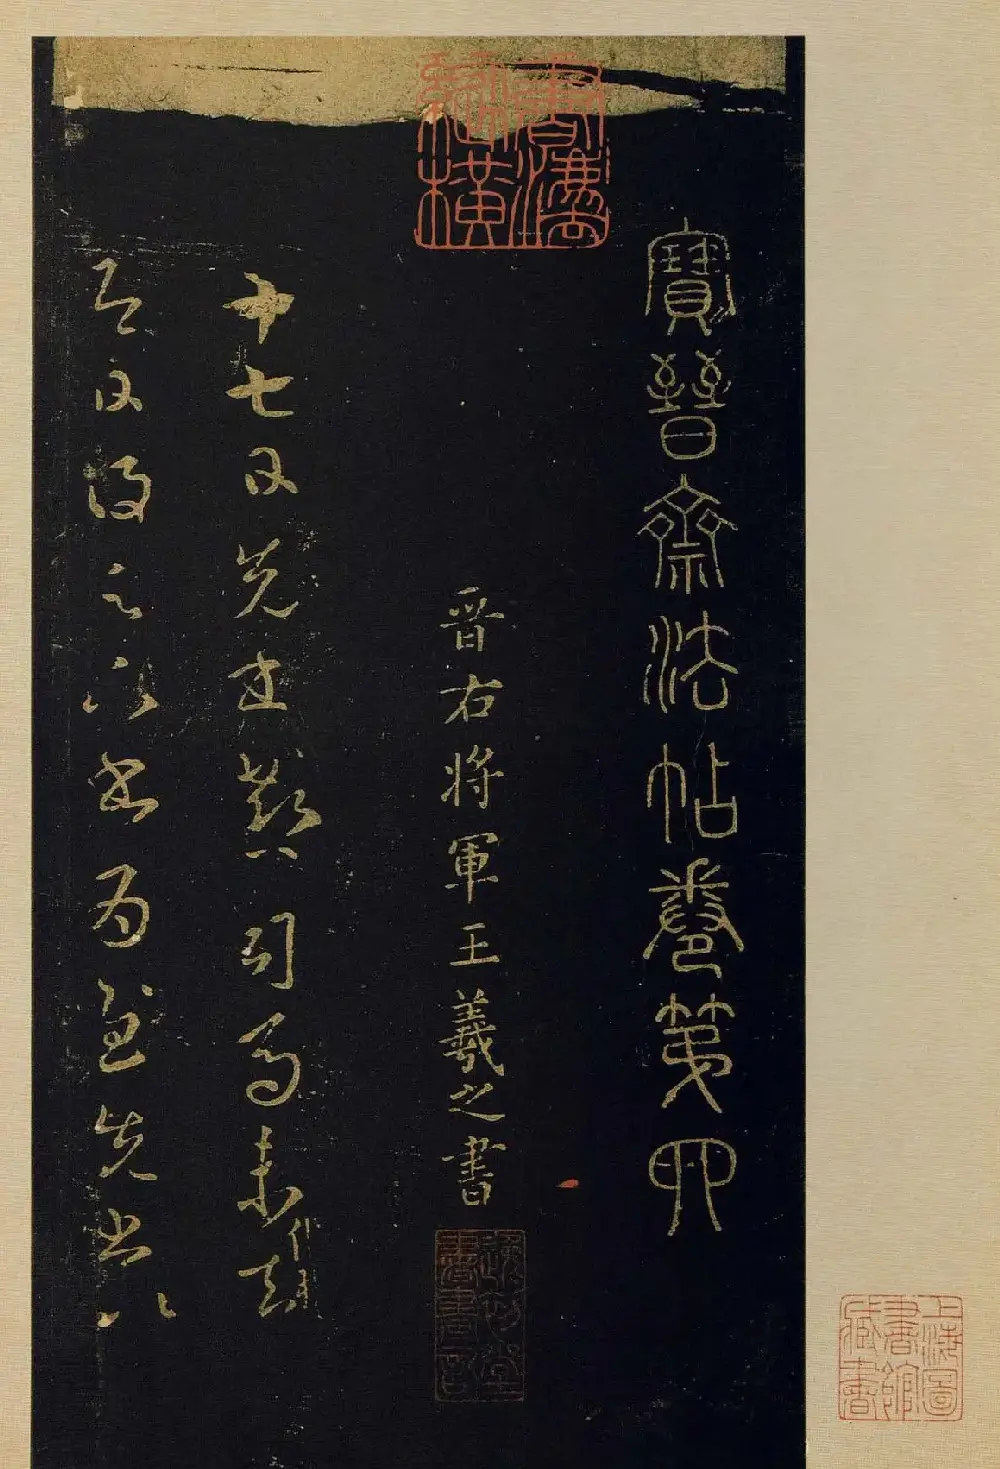 寶晉齋法帖卷第四
晋右將軍王羲之書
十七日先書郗司馬未去
即日得足下書為慰先書以
上海圖書館藏書